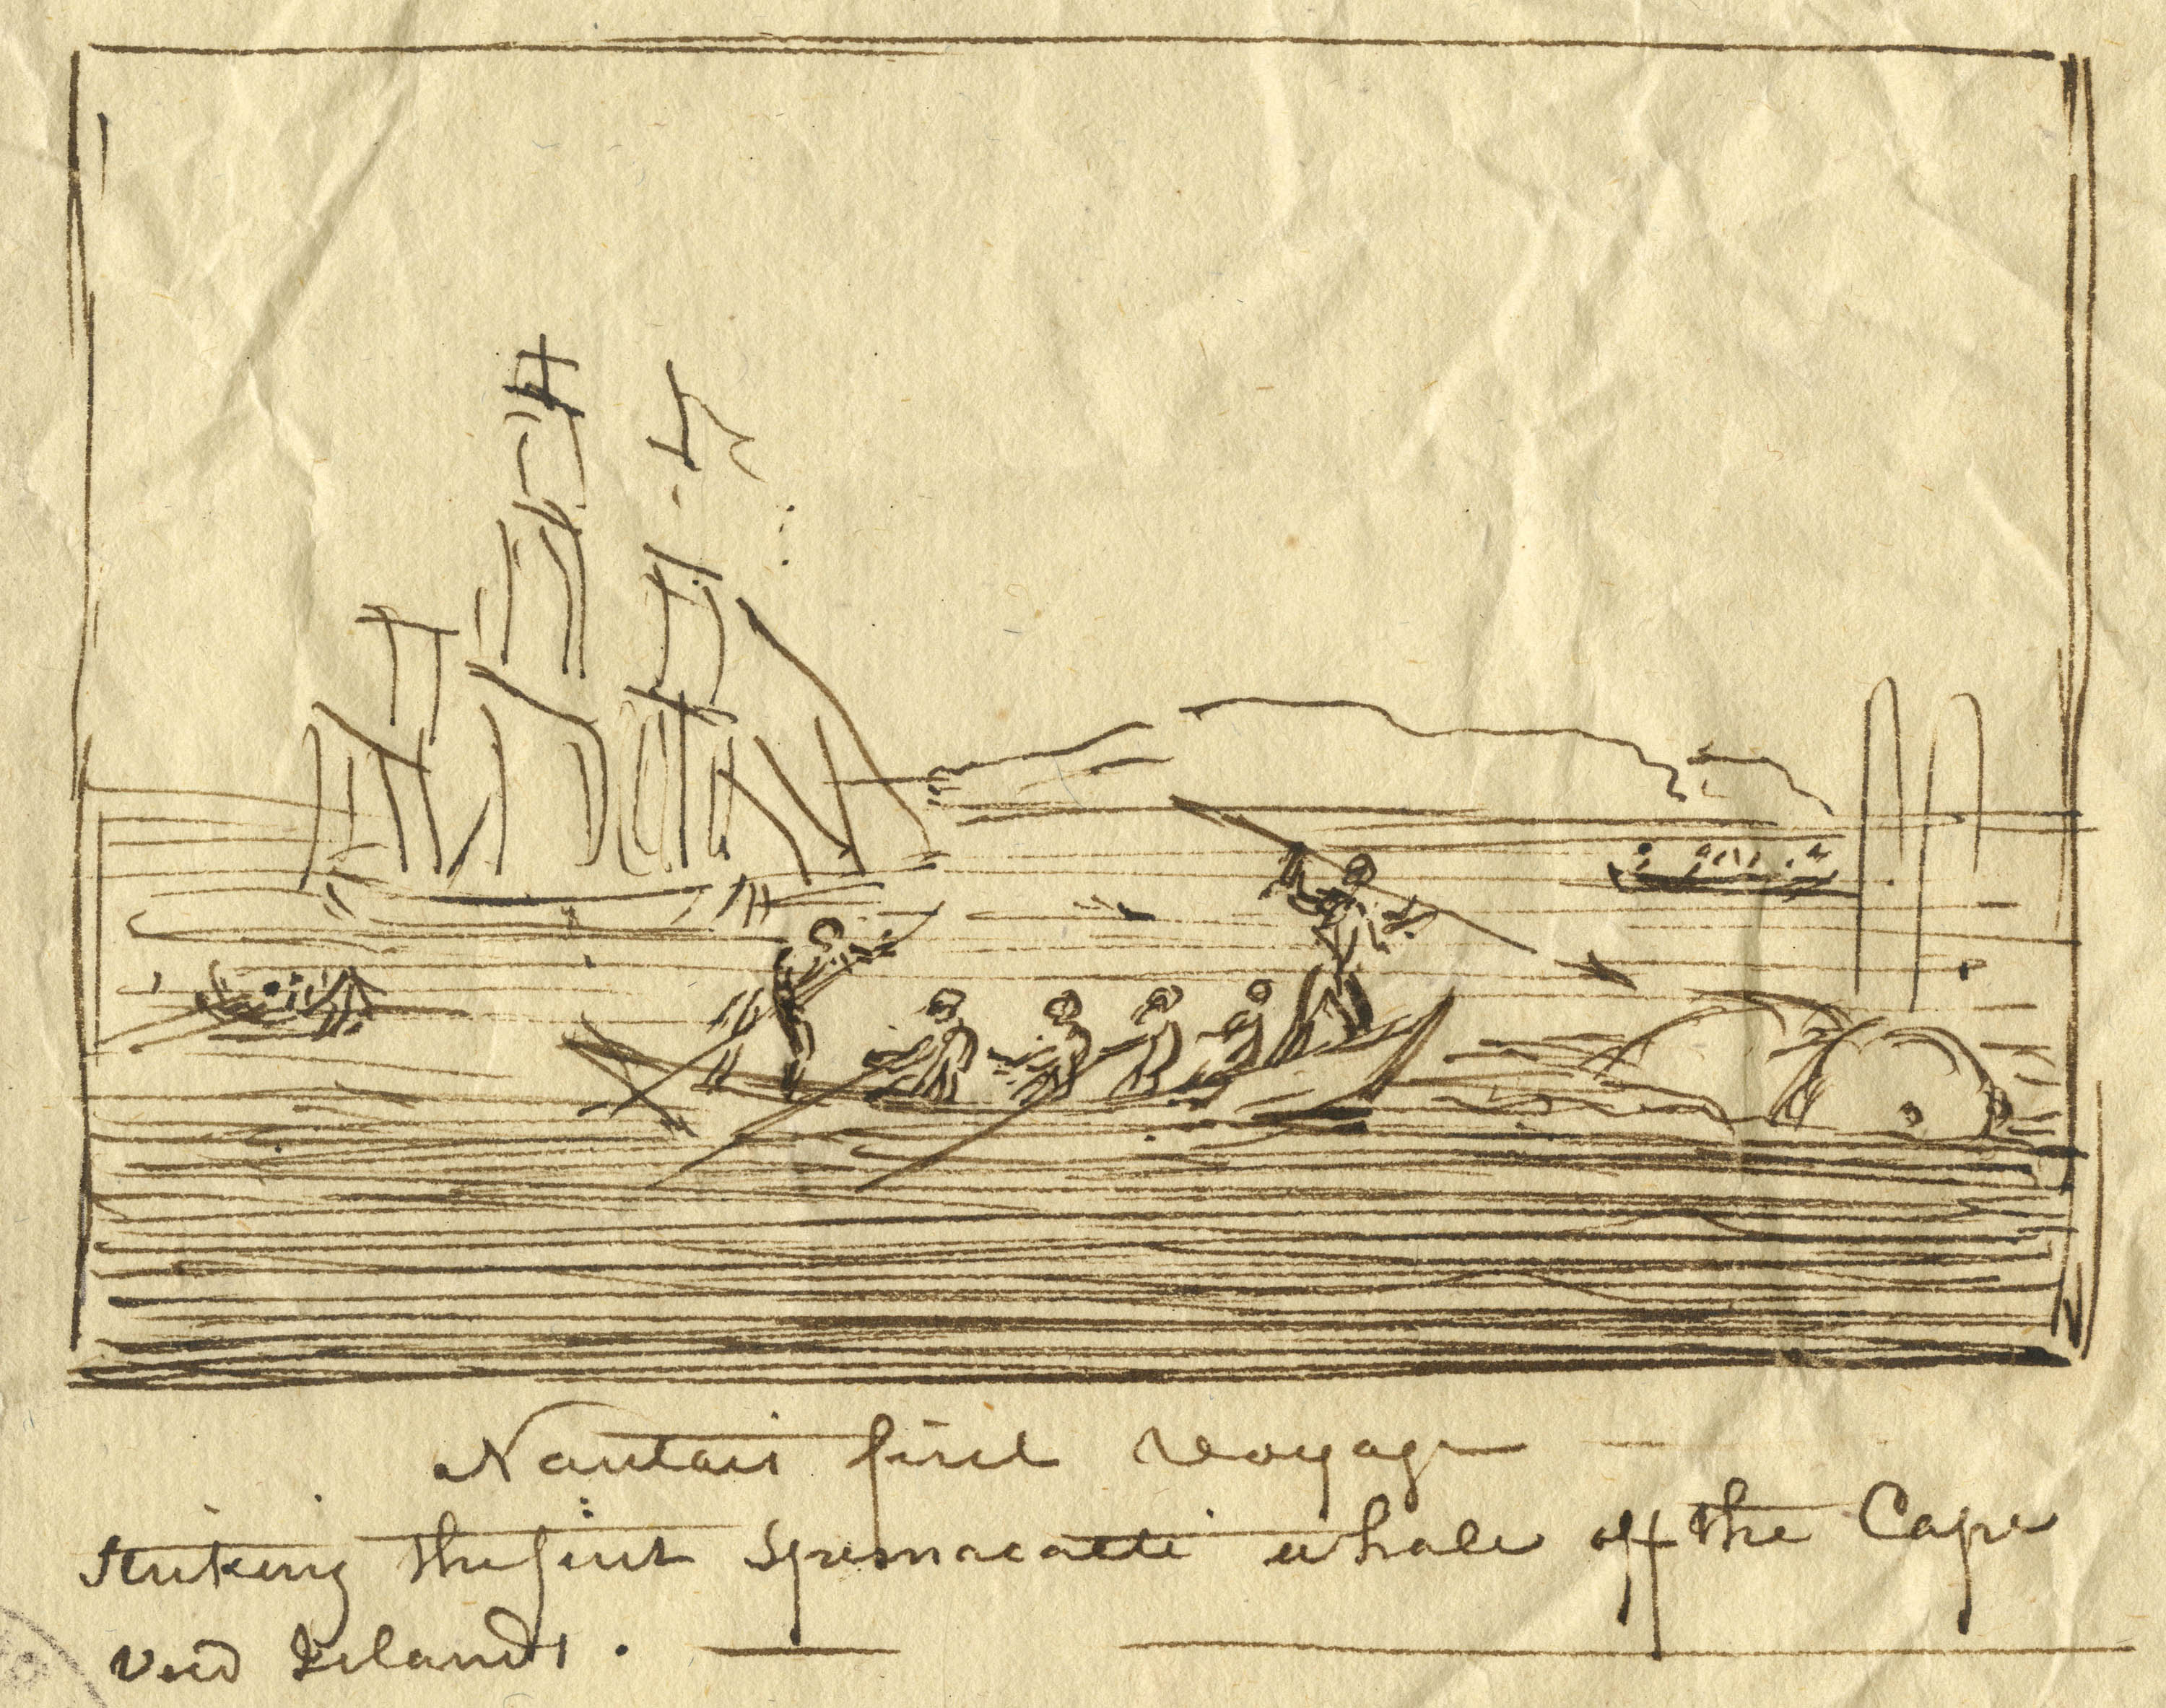 Nautaus first Voyage
Striking the first Spermacaetti whale off the Cape
Verd Islands.